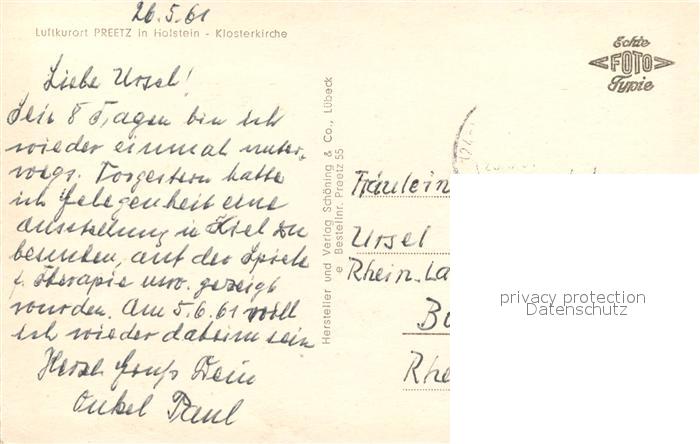 26.5.61
Luftkurort PREETZ in Holstein - Klosterkirche
Liebe Ursel!
Seit 8 Tagen bin ich
wieder einmal unter-
wegs. Vorgestern hatte
ich Gelegenheit eine
Ausstellung in Kiel zu
besuchen, auf der Spiele
f. Therapie usw. gezeigt
wurden. Am 5.6.61 will
ich wieder daheim sein
Herzl. Gruß Dein
Onkel Paul
Hersteller und Verlag Schöning & Co., Lübeck
e Bestellnr. Preetz 55
Echte
FOTO
Typie
Fräulein
Ursel
Rhein-La
Bo
Rhe
privacy protection
Datenschutz